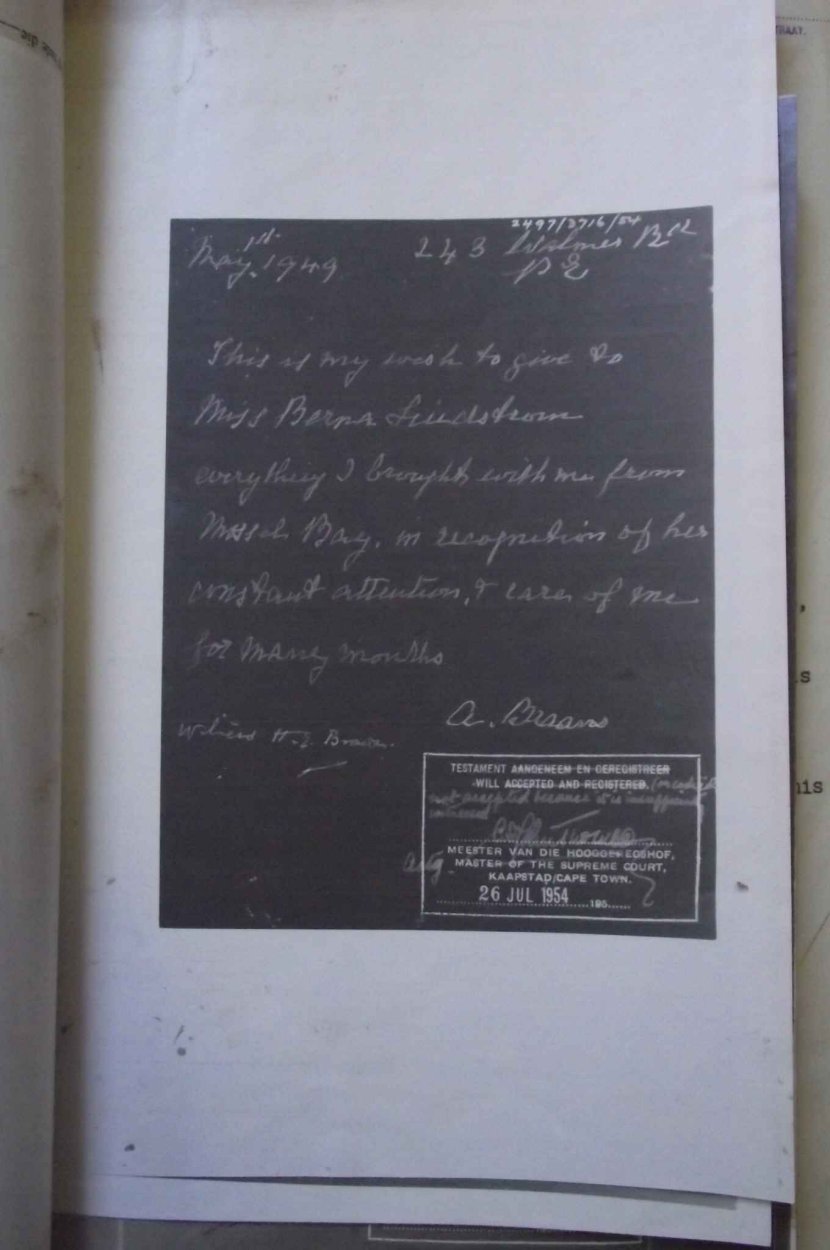 RAAT.
2497/3716/54
May 1st. 1949
243 Walmer Rd
P E
This is my wish to give to
Miss Berna Lindstrom
everything I brought with me from
Mossel Bay, in recognition of her
constant attention, & care of me
for many months
A.
Witness H.
TESTAMENT AANGENEEM EN GEREGISTREER
WILL ACCEPTED AND REGISTERED.
not accepted because it is
witnessed
MEESTER VAN DIE HOOGGEREGSHOF,
MASTER OF THE SUPREME COURT,
KAAPSTAD/CAPE TOWN.
26 JUL 1954 195
s
his